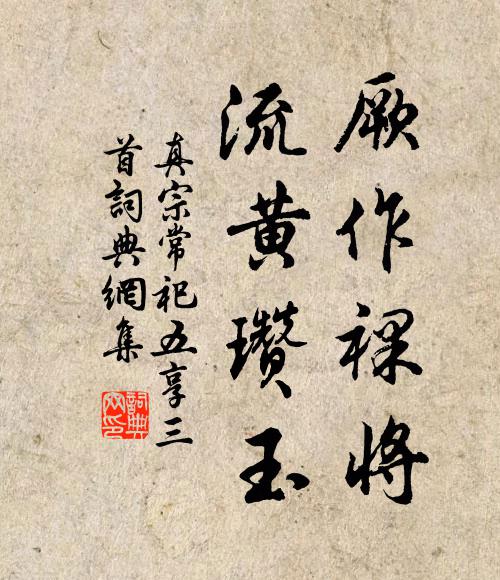 厥作祼將
流黃瓚玉
真宗常祀五享三
首詞典網集
詞典网印